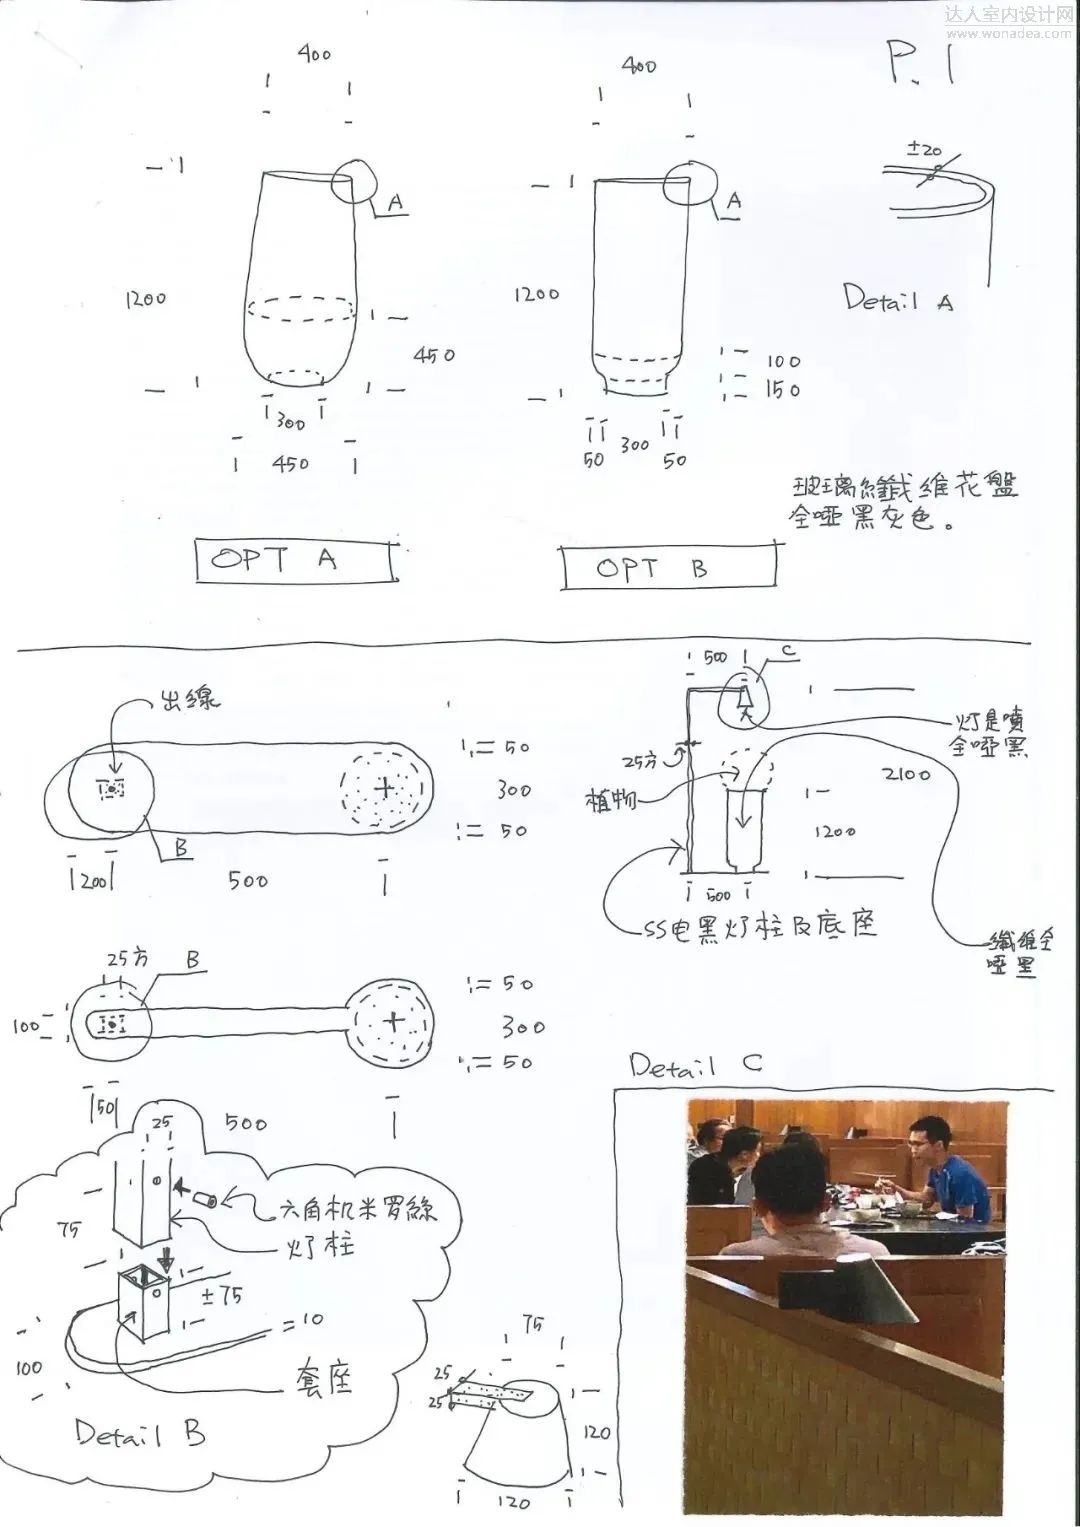 达人室内设计网
www.wonadea.com
P.1
400
400
±20
A
A
1200
1200
Detail A
450
100
150
300
450
50
300
50
玻璃纖维花盤
全啞黑灰色。
OPT A
OPT B
出線
50
300
50
B
200
500
500
C
灯是噴
全啞黑
25方
植物
2100
1200
500
SS电黑灯柱及底座
纖维全
啞黑
25方
B
100
50
300
50
50
500
Detail C
25
75
六角机米罗絲
灯柱
±75
10
100
套座
Detail B
75
25
25
120
120